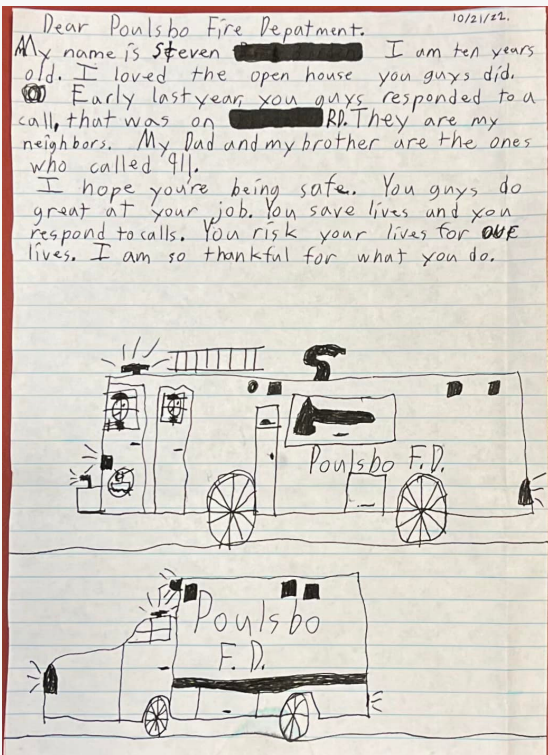 10/21/22.
Dear Poulsbo Fire Depatment.
My name is Steven I am ten years
old. I loved the open house you guys did.
Early last year, you guys responded to a
call, that was on RD. They are my
neighbors. My Dad and my brother are the ones
who called 911.
I hope you're being safe. You guys do
great at your job. You save lives and you
respond to calls. You risk your lives for our
lives. I am so thankful for what you do.
Poulsbo F.D.
Poulsbo
F.D.